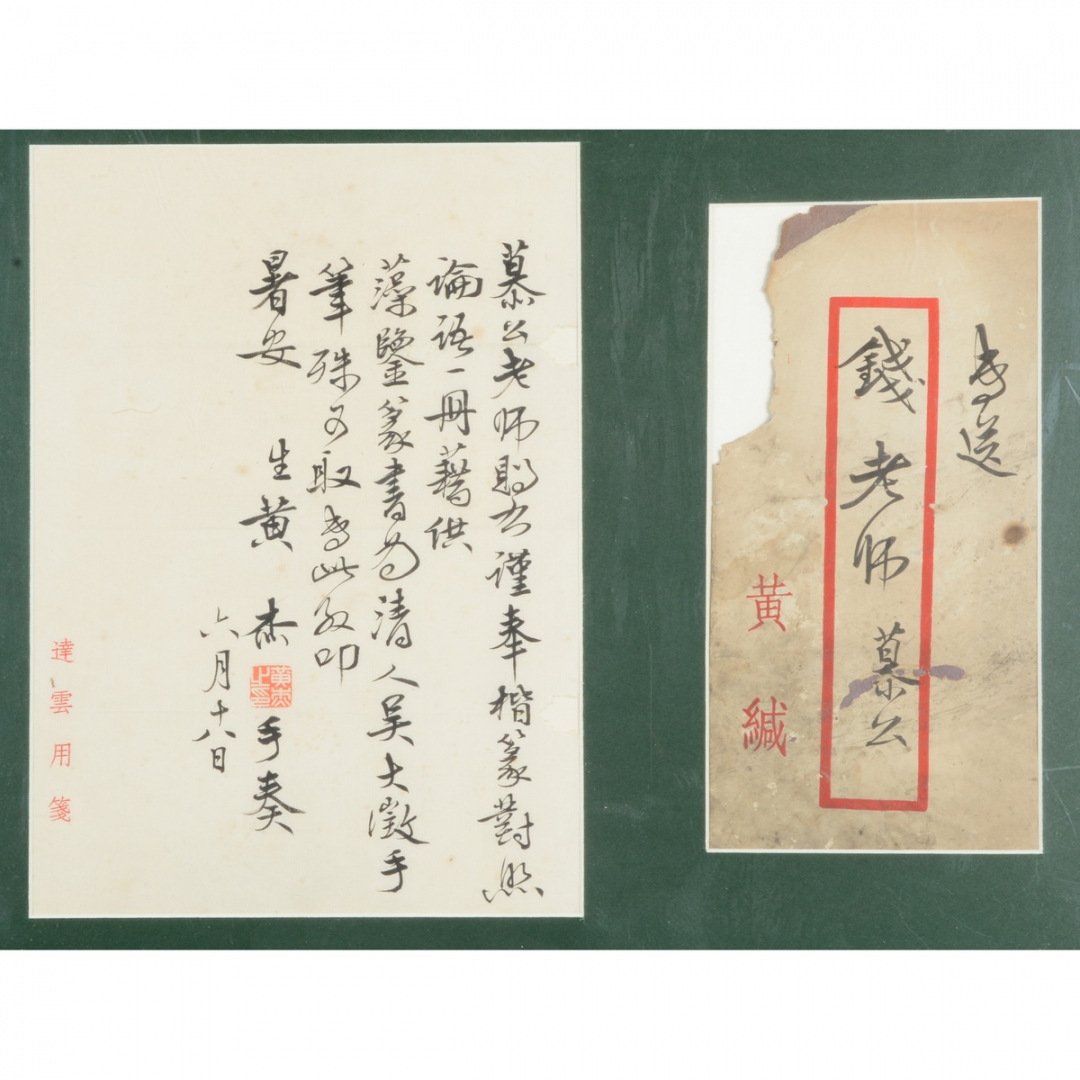 專送
錢老師 慕公
黃緘
慕公老師賜 謹奉楷篆對照
論語一冊藉供
藻鑒篆書為清人吳大澂手
筆殊可取專此敬叩
暑安 生黃杰 手奏
黃杰之印
六月十八日
達雲用箋